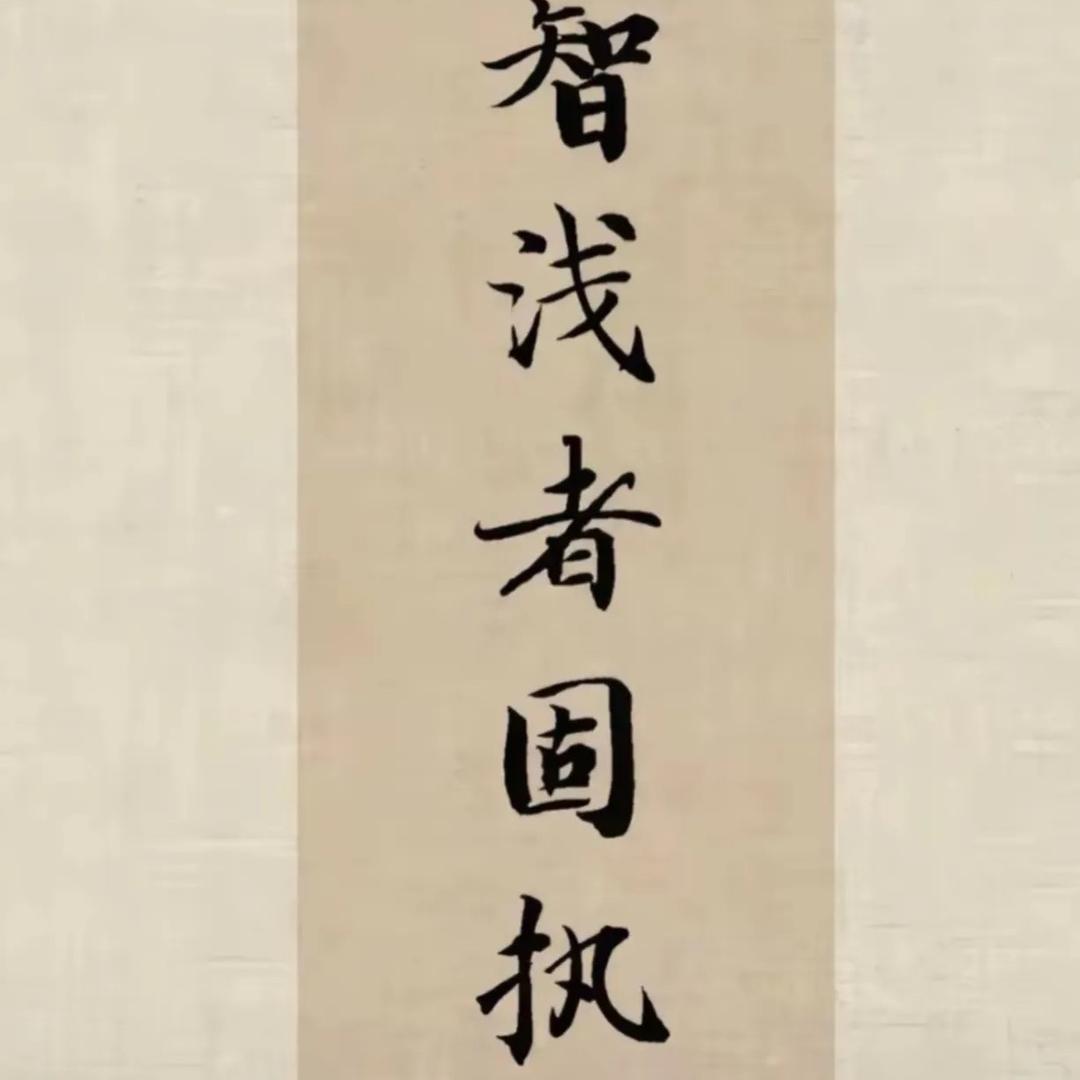 智浅者固执